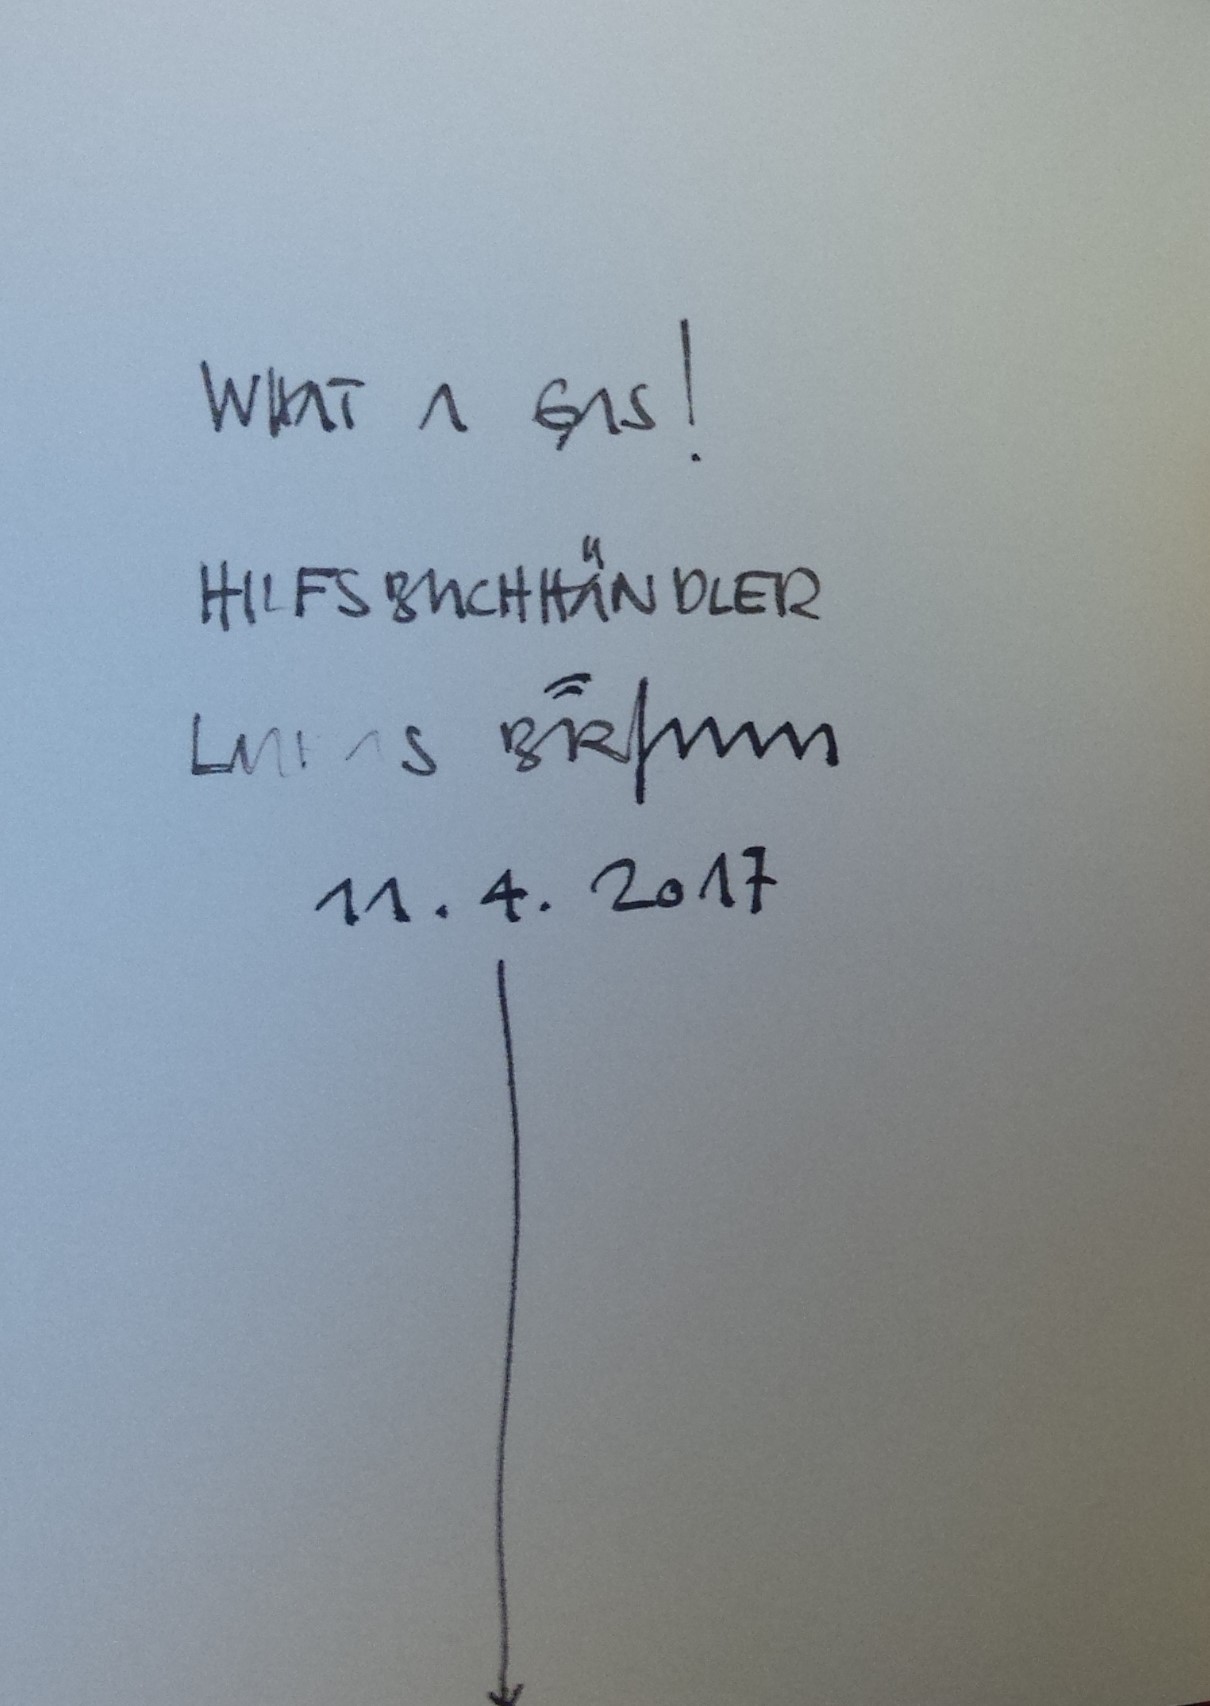 WHAT A GAS!
HILFSBUCHHÄNDLER
LUKAS BÄRFUSS
11. 4. 2017